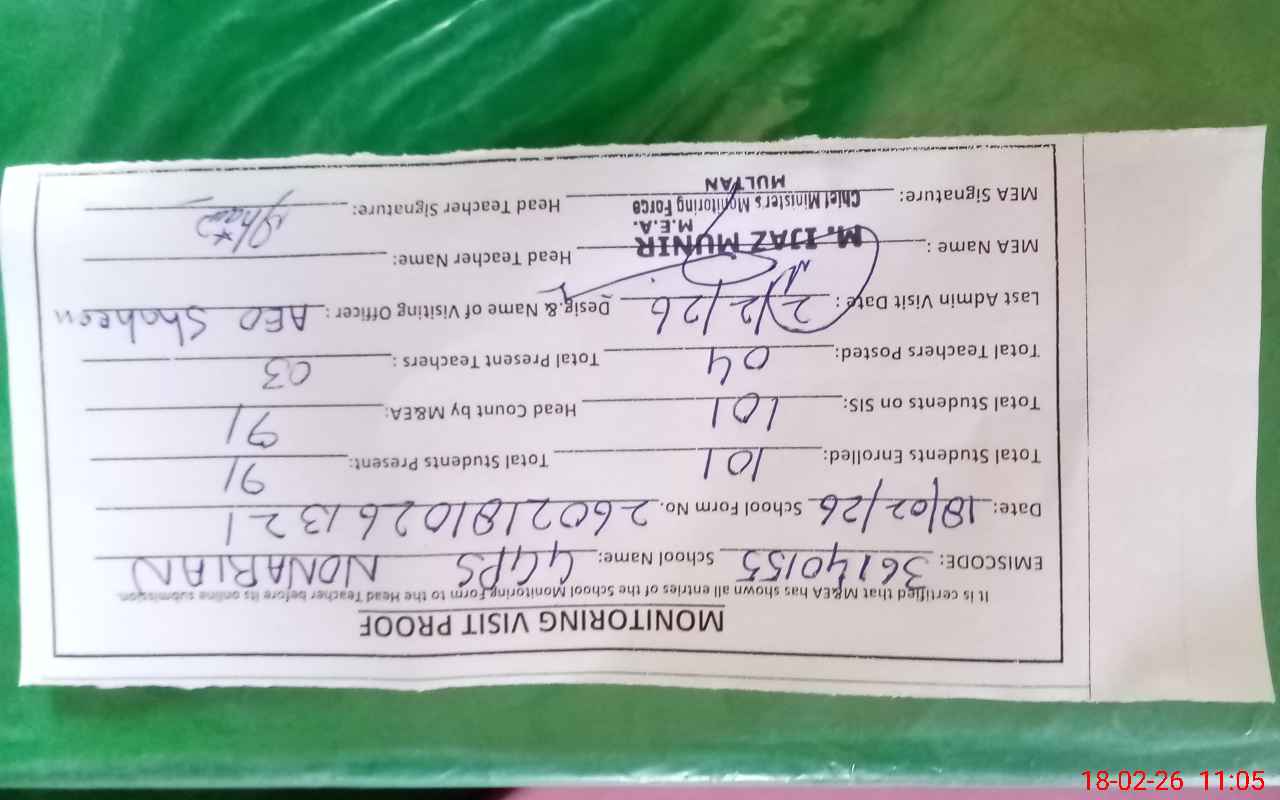 MONITORING VISIT PROOF
It is certified that M&EA has shown all entries of the School Monitoring Form to the Head Teacher before its online submission.
EMISCODE: 36140155 School Name: GGPS NONARIAN
Date: 18/02/26 School Form No. 260218102613 21
Total Students Enrolled: 101 Total Students Present: 91
Total Students on SIS: 101 Head Count by M&EA: 91
Total Teachers Posted: 04 Total Present Teachers : 03
Last Admin Visit Date : 2/2/26 Desig.& Name of Visiting Officer : AEO Shaheen
MEA Name : M. IJAZ MUNIR Head Teacher Name:
M.E.A.
Chief Minister's Monitoring Force
MEA Signature: Head Teacher Signature:
MULTAN
18-02-26 11:05